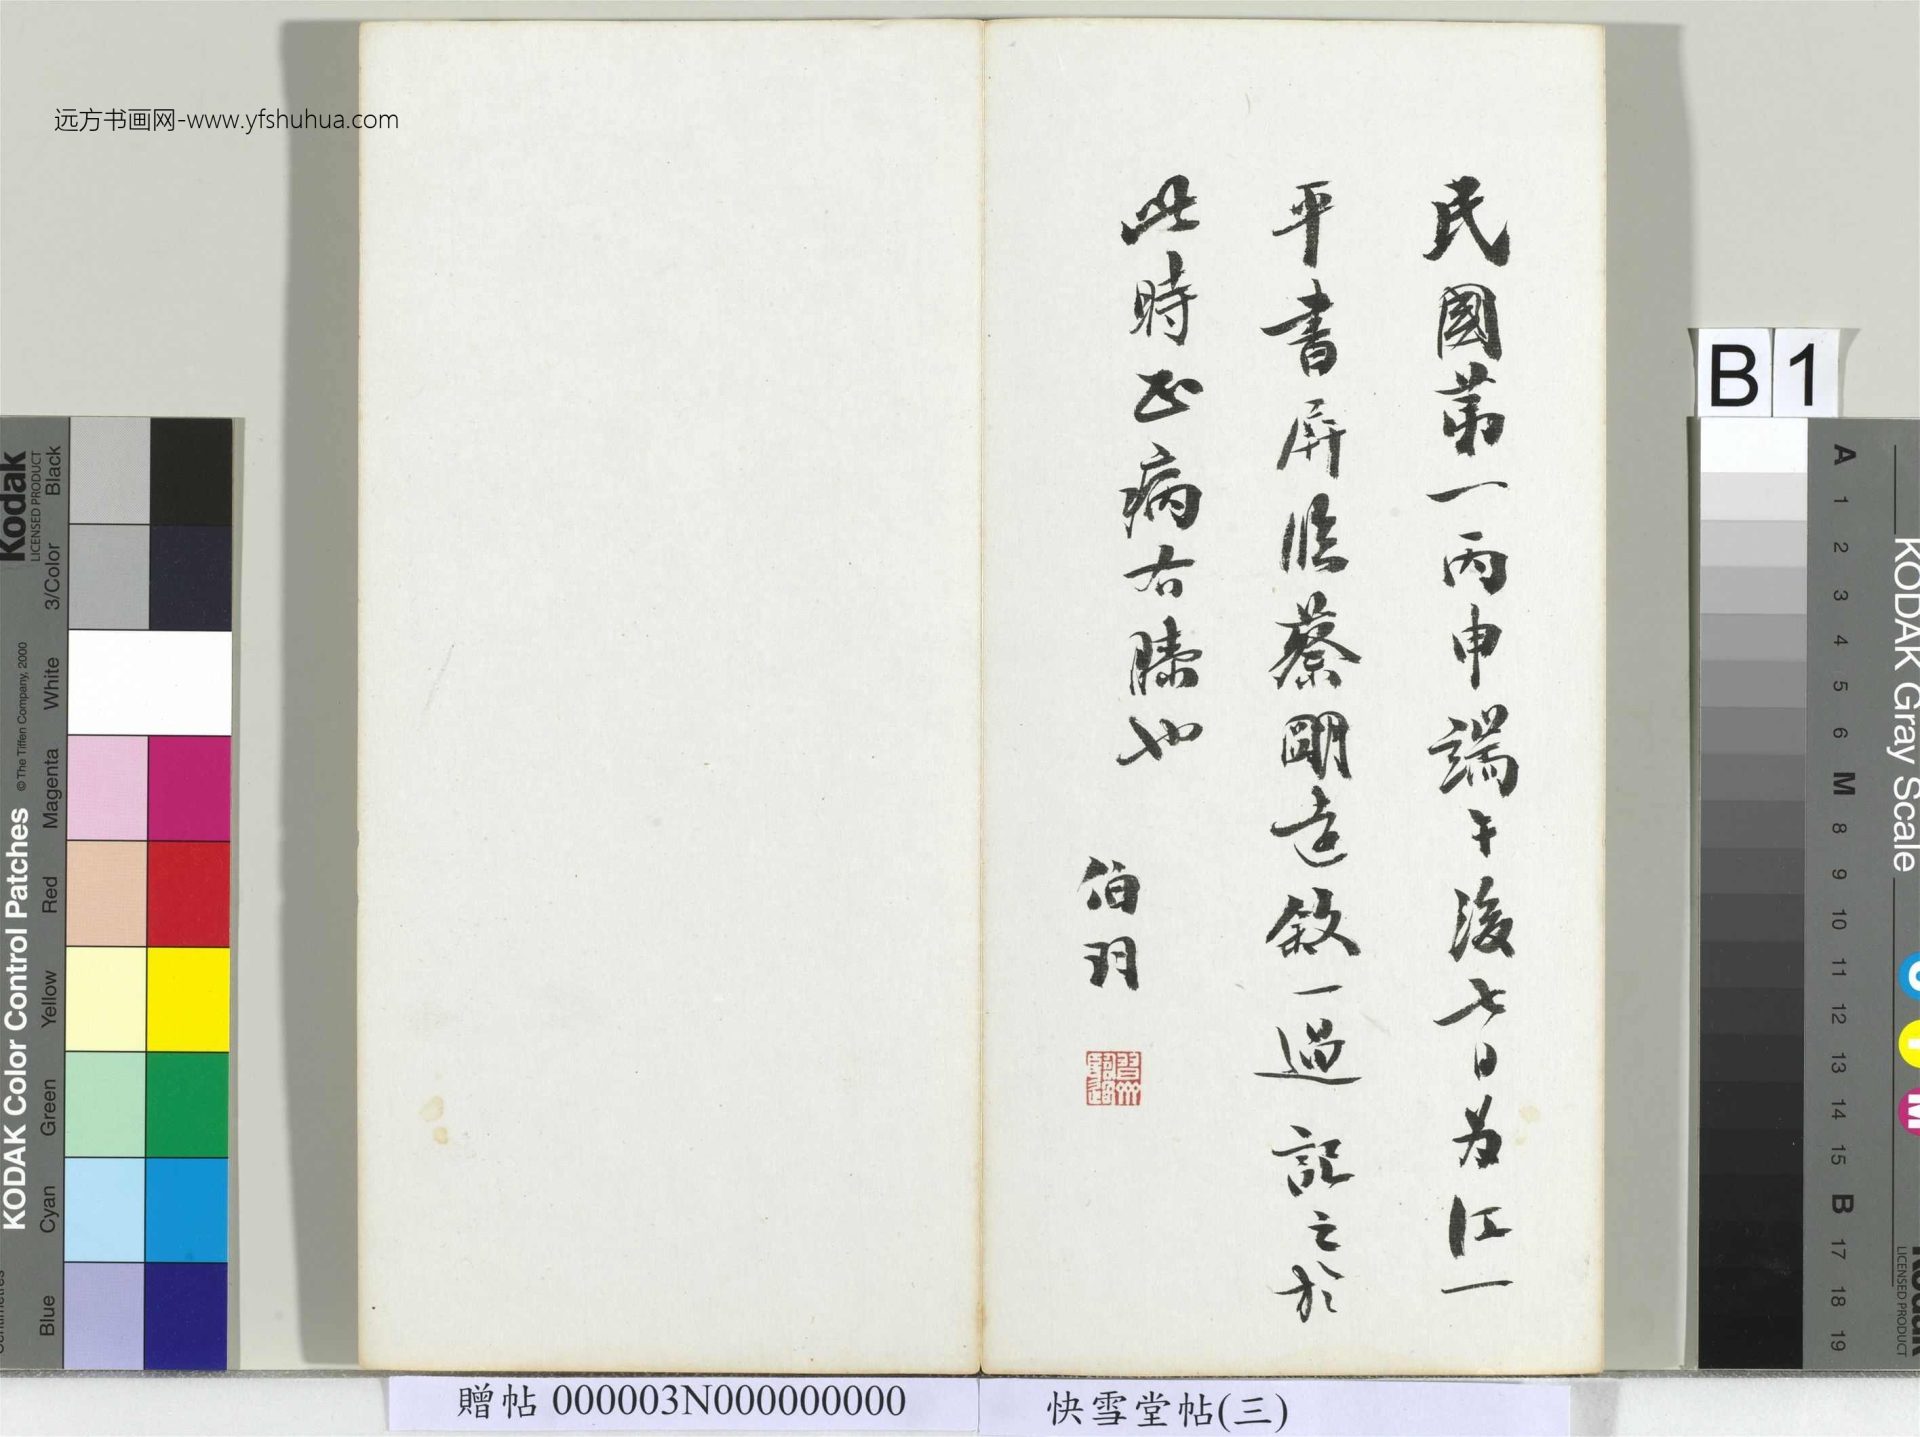 远方书画网-www.yfshuhua.com
民國第一丙申端午後七日為江一
平書屏臨蔡明遠敘一過記之於
此時正病右膝也
伯羽
贈帖 000003N000000000
快雪堂帖(三)
B 1
Kodak
LICENSED PRODUCT
KODAK Color Control Patches
©The Tiffen Company, 2000
Blue
Cyan
Green
Yellow
Red
Magenta
White
3/Color
Black
KODAK Gray Scale
A 1 2 3 4 5 6 M 8 9 10 11 12 13 14 15 B 17 18 19
C
Y
M
Kodak
LICENSED PRODUCT